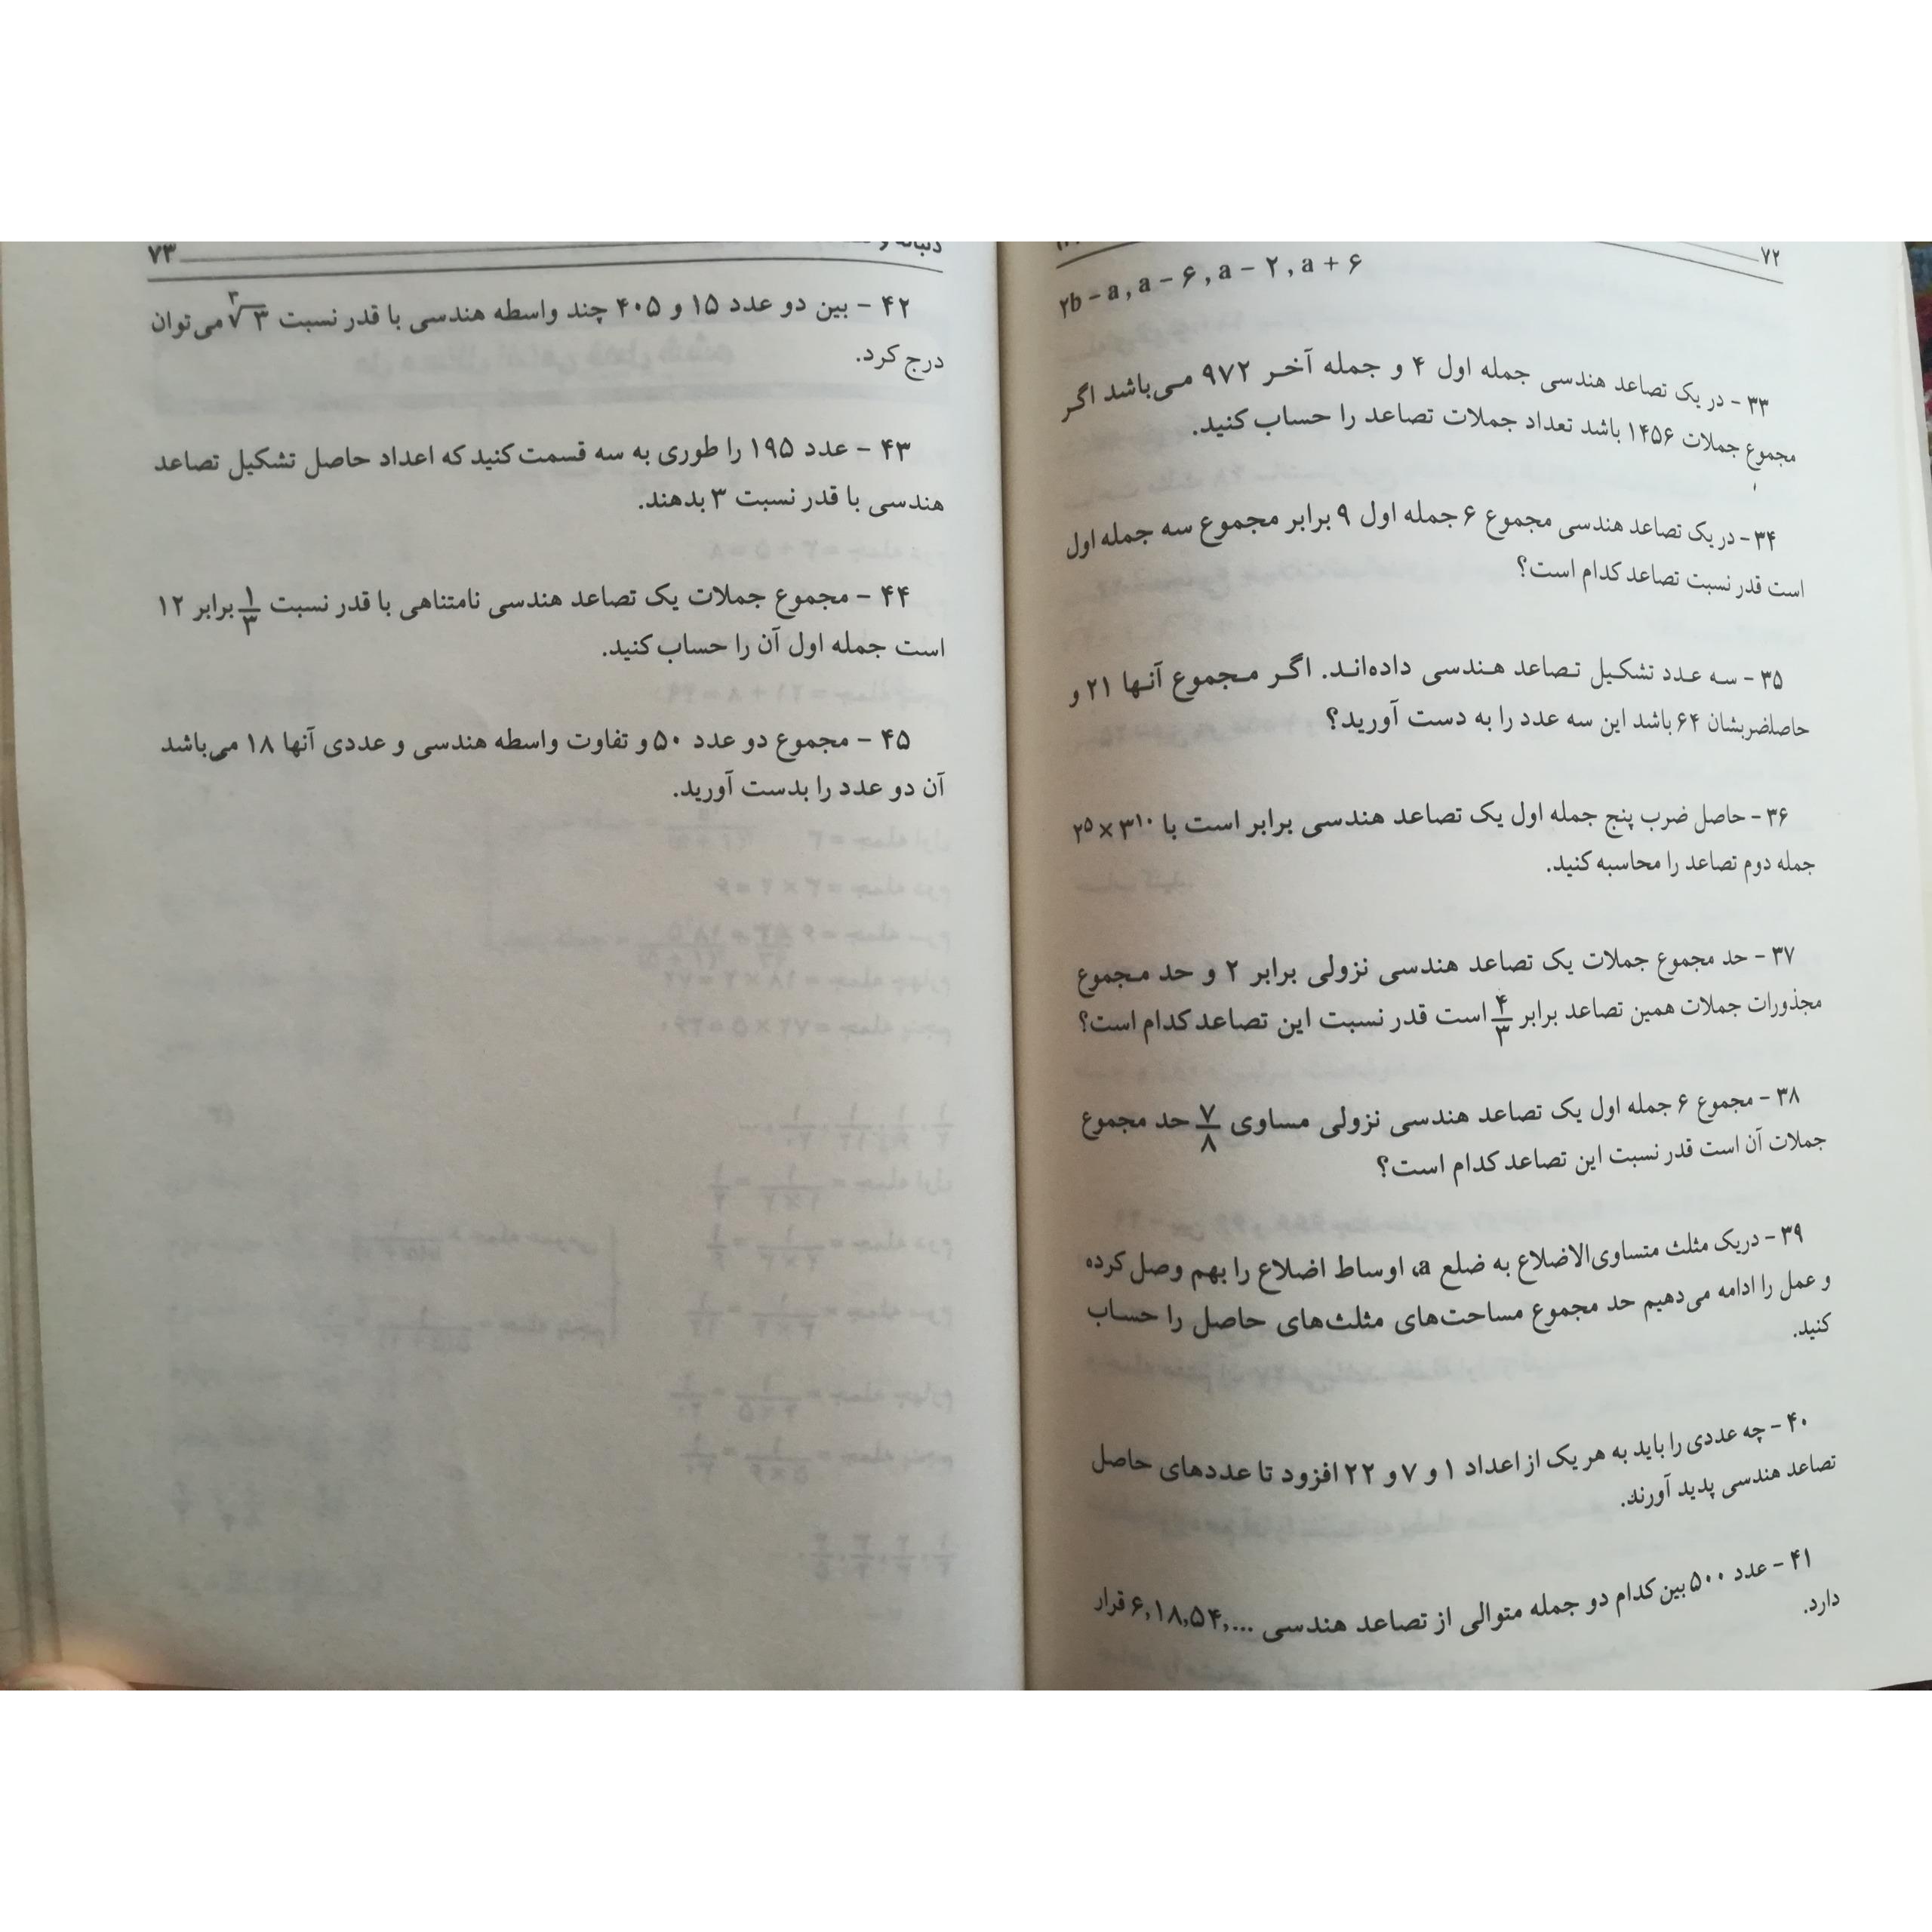 ۷۲
۲b – a , a – ۶ , a – ۲ , a + ۶
۳۳ – در یک تصاعد هندسی جمله اول ۴ و جمله آخر ۹۷۲ می‌باشد اگر
مجموع جملات ۱۴۵۶ باشد تعداد جملات تصاعد را حساب کنید.
۳۴ – در یک تصاعد هندسی مجموع ۶ جمله اول ۹ برابر مجموع سه جمله اول
است قدر نسبت تصاعد کدام است؟
۳۵ – سه عدد تشکیل تصاعد هندسی داده‌اند. اگر مجموع آنها ۲۱ و
حاصلضربشان ۶۴ باشد این سه عدد را به دست آورید؟
۳۶ – حاصل ضرب پنج جمله اول یک تصاعد هندسی برابر است با ۲⁵ × ۳¹⁰
جمله دوم تصاعد را محاسبه کنید.
۳۷ – حد مجموع جملات یک تصاعد هندسی نزولی برابر ۲ و حد مجموع
مجذورات جملات همین تصاعد برابر ۴/۳ است قدر نسبت این تصاعد کدام است؟
۳۸ – مجموع ۶ جمله اول یک تصاعد هندسی نزولی مساوی ۷/۸ حد مجموع
جملات آن است قدر نسبت این تصاعد کدام است؟
۳۹ – در یک مثلث متساوی‌الاضلاع به ضلع a، اوساط اضلاع را بهم وصل کرده
و عمل را ادامه می‌دهیم حد مجموع مساحت‌های مثلث‌های حاصل را حساب
کنید.
۴۰ – چه عددی را باید به هر یک از اعداد ۱ و ۷ و ۲۲ افزود تا عددهای حاصل
تصاعد هندسی پدید آورند.
۴۱ – عدد ۵۰۰ بین کدام دو جمله متوالی از تصاعد هندسی ...,۶,۱۸,۵۴ قرار
دارد.
۷۳
۴۲ – بین دو عدد ۱۵ و ۴۰۵ چند واسطه هندسی با قدر نسبت ∛۳ می‌توان
درج کرد.
۴۳ – عدد ۱۹۵ را طوری به سه قسمت کنید که اعداد حاصل تشکیل تصاعد
هندسی با قدر نسبت ۳ بدهند.
۴۴ – مجموع جملات یک تصاعد هندسی نامتناهی با قدر نسبت ۱/۳ برابر ۱۲
است جمله اول آن را حساب کنید.
۴۵ – مجموع دو عدد ۵۰ و تفاوت واسطه هندسی و عددی آنها ۱۸ می‌باشد
آن دو عدد را بدست آورید.